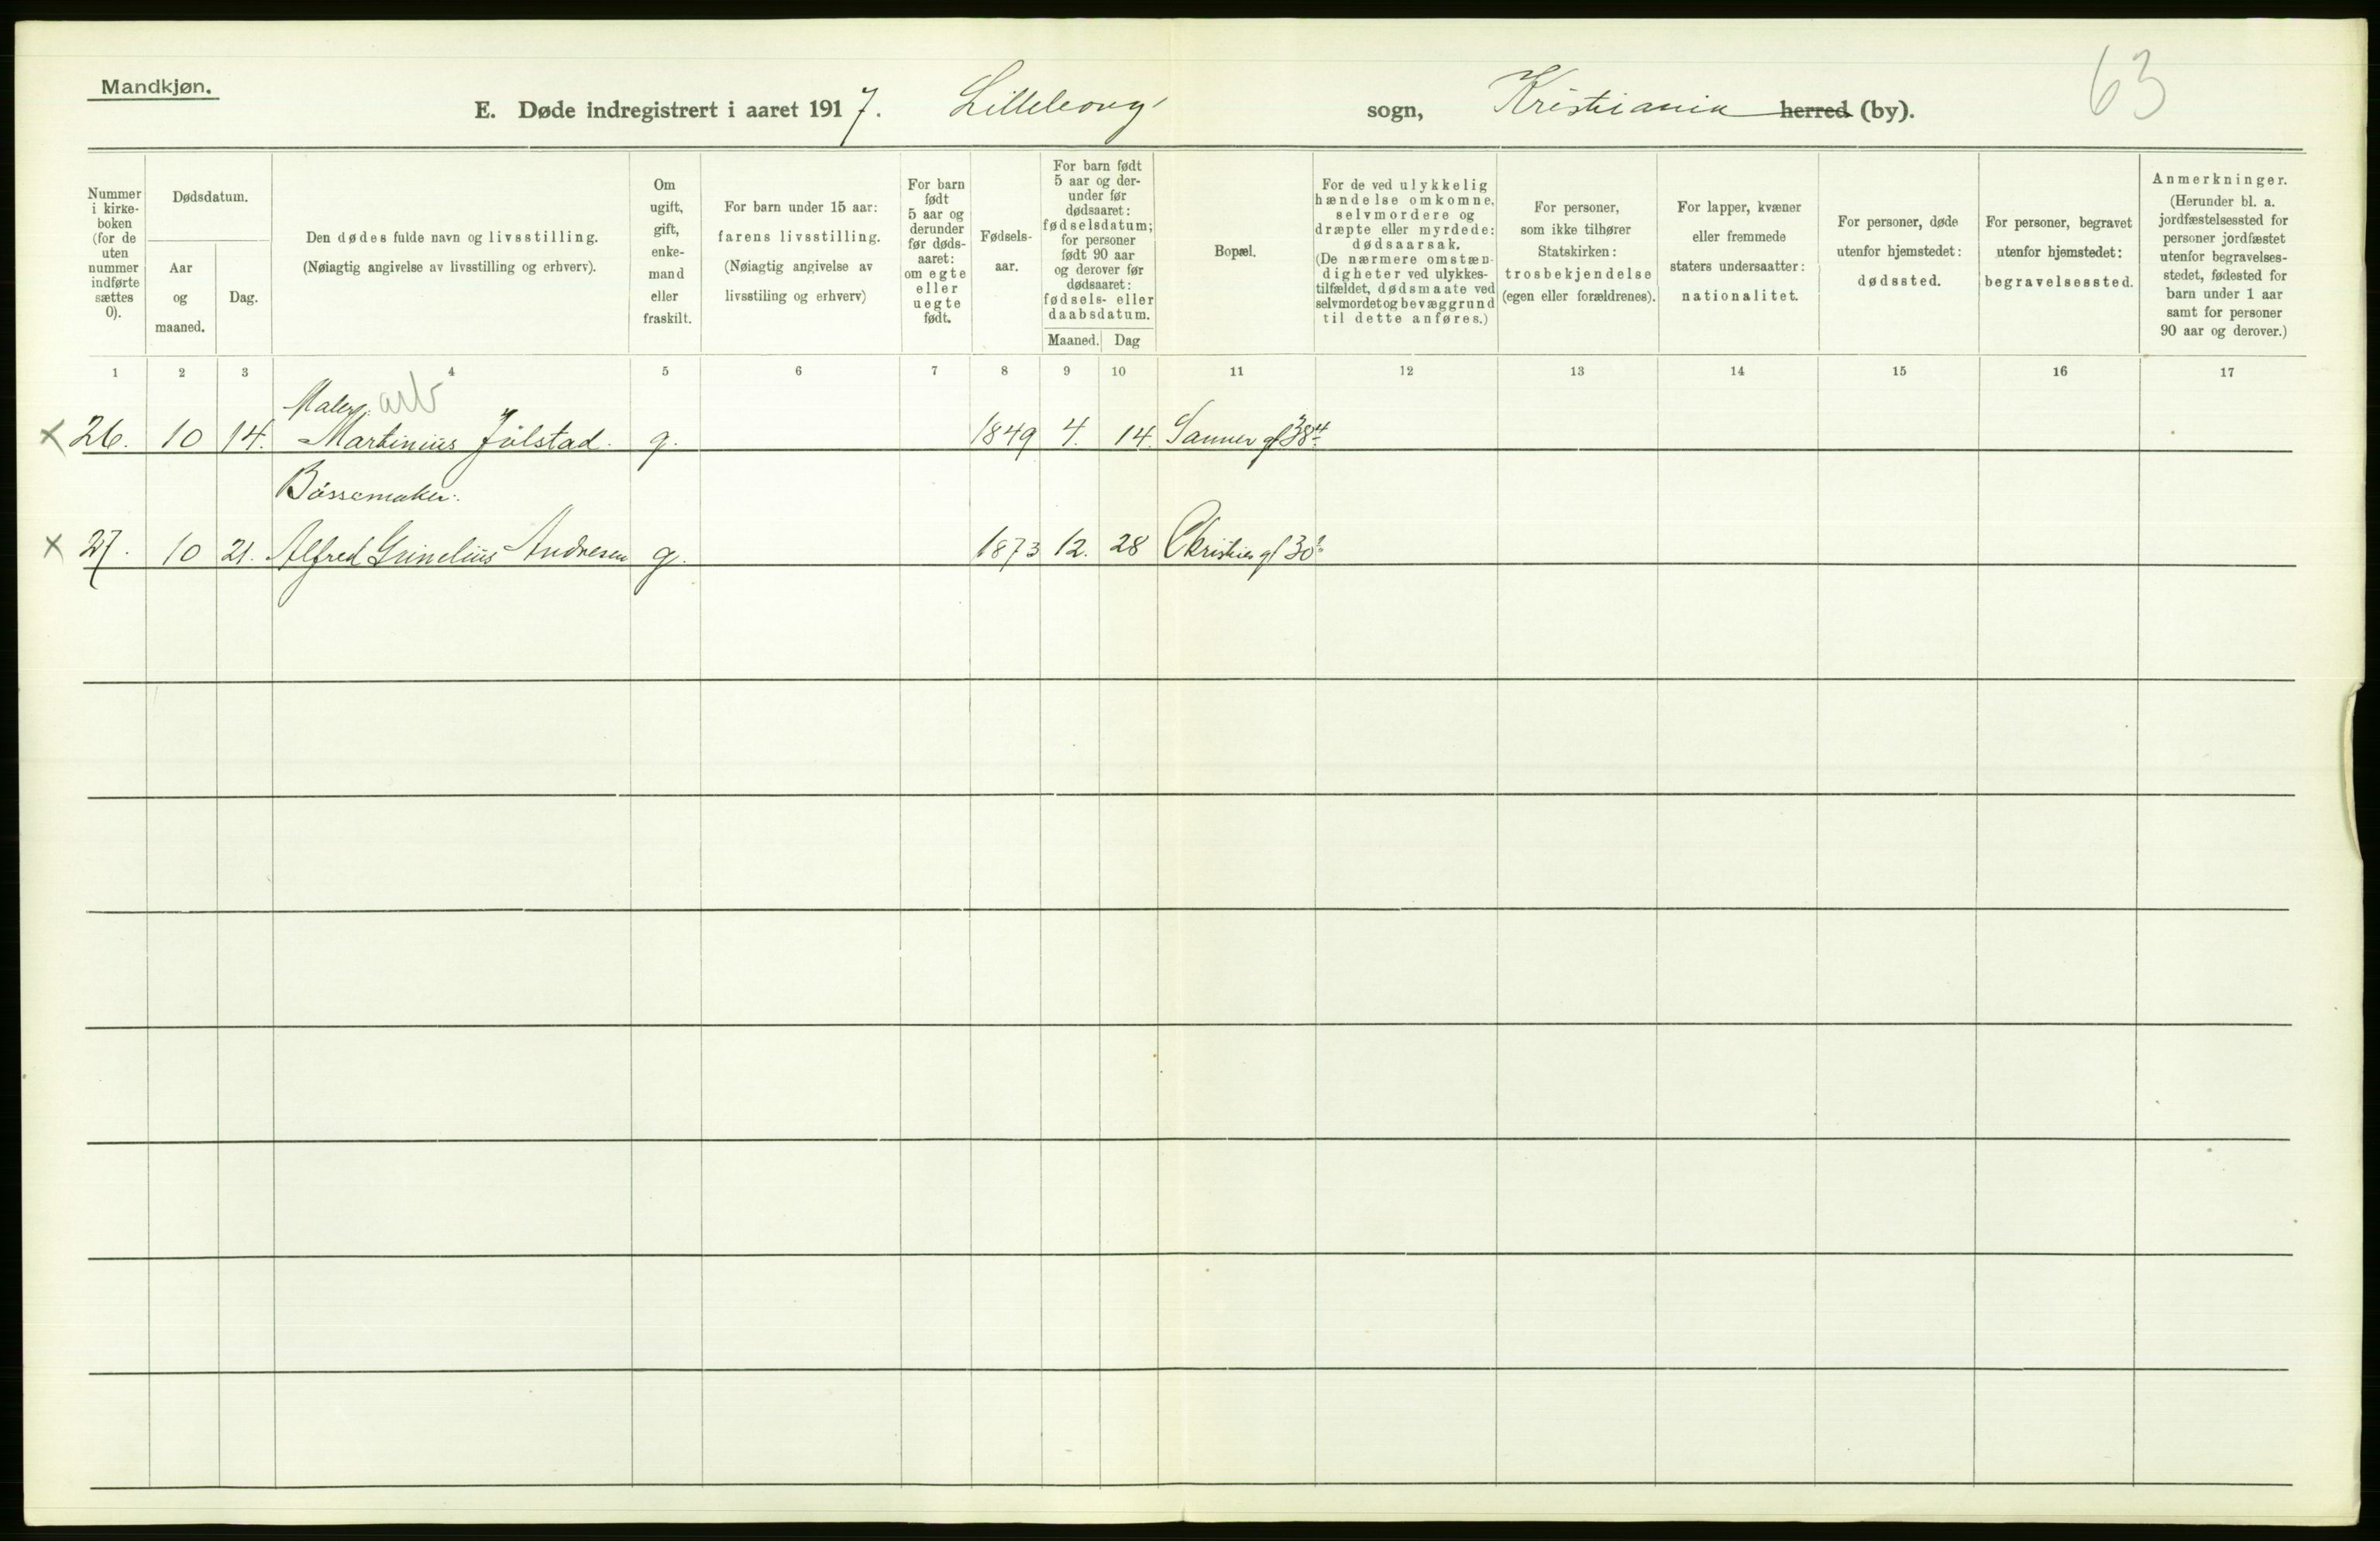 Mandkjøn.
63
E. Døde indregistrert i aaret 1917. Lilleborg sogn, Kristiania herred (by).
Nummer i kirke- boken (for de uten nummer indførte sættes 0).
Dødsdatum.
Aar og maaned.
Dag.
Den dødes fulde navn og livsstilling.
(Nøiagtig angivelse av livsstilling og erhverv).
Om ugift, gift, enke- mand eller fraskilt.
For barn under 15 aar: farens livsstilling.
(Nøiagtig angivelse av livsstiling og erhverv)
For barn født 5 aar og derunder før døds- aaret: om egte eller uegte født.
Fødsels- aar.
For barn født 5 aar og der- under før dødsaaret: fødselsdatum; for personer født 90 aar og derover før dødsaaret: fødsels- eller daabsdatum.
Maaned. Dag
Bopæl.
For de ved ulykkelig hændelse omkomne, selvmordere og dræpte eller myrdede: dødsaarsak.
(De nærmere omstæn- digheter ved ulykkes- tilfældet, dødsmaate ved selvmordet og bevæggrund til dette anføres.)
For personer, som ikke tilhører Statskirken: trosbekjendelse (egen eller forældrenes).
For lapper, kvæner eller fremmede staters undersaatter: nationalitet.
For personer, døde utenfor hjemstedet: dødssted.
For personer, begravet utenfor hjemstedet: begravelsessted.
Anmerkninger.
(Herunder bl. a. jordfæstelsessted for personer jordfæstet utenfor begravelses- stedet, fødested for barn under 1 aar samt for personer 90 aar og derover.)
1 2 3 4 5 6 7 8 9 10 11 12 13 14 15 16 17
Maler. arb
x 26. 10 14. Martinius Julstad. g. 1849 4. 14. Sanner gt 38 4
Bøssemaker.
x 27. 10 21. Alfred Andresen g. 1873 12. 28 Christies gt 30